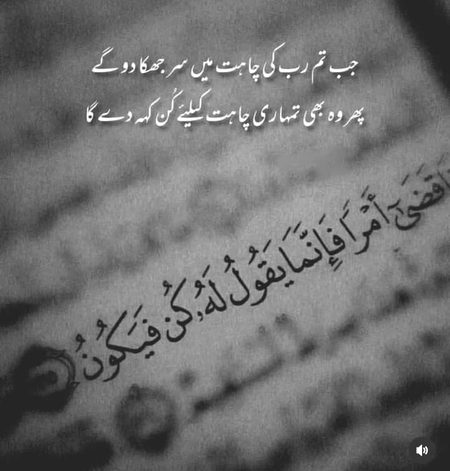 جب تم رب کی چاہت میں سر جھکا دو گے
پھر وہ بھی تمہاری چاہت کیلیئے کُن کہہ دے گا
قَضَىٰٓ أَمْرًا فَإِنَّمَا يَقُولُ لَهُۥ كُن فَيَكُونُ